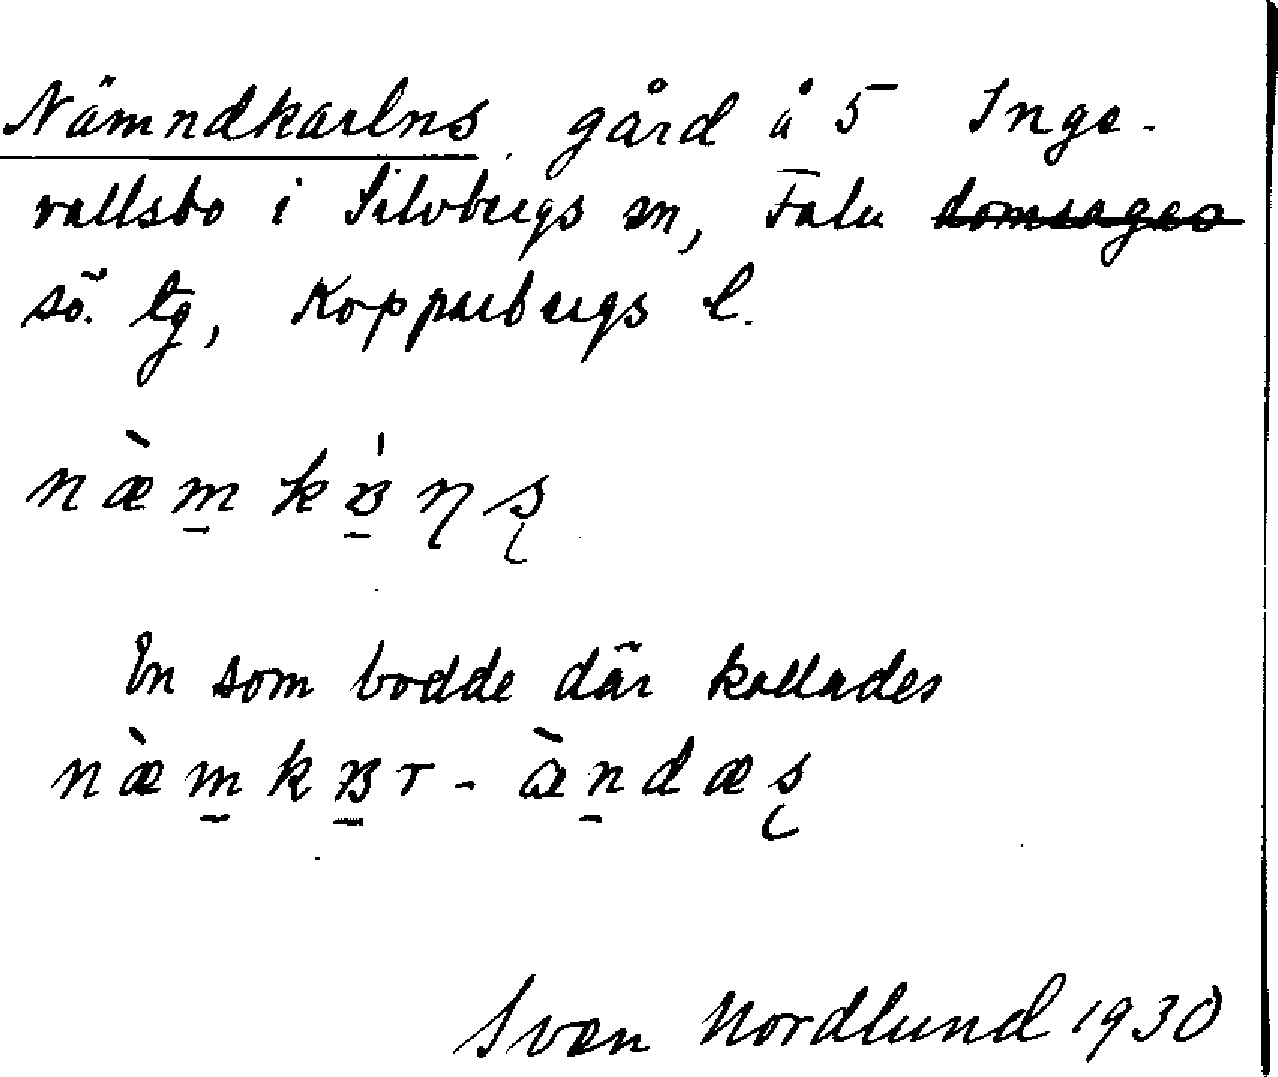 Nämndkarlns gård å 5 Inge-
vallsbo i Silvbergs sn, Falu domsagas
sö. tg, Kopparbergs l.
En som bodde där kallades
Sven Nordlund 1930